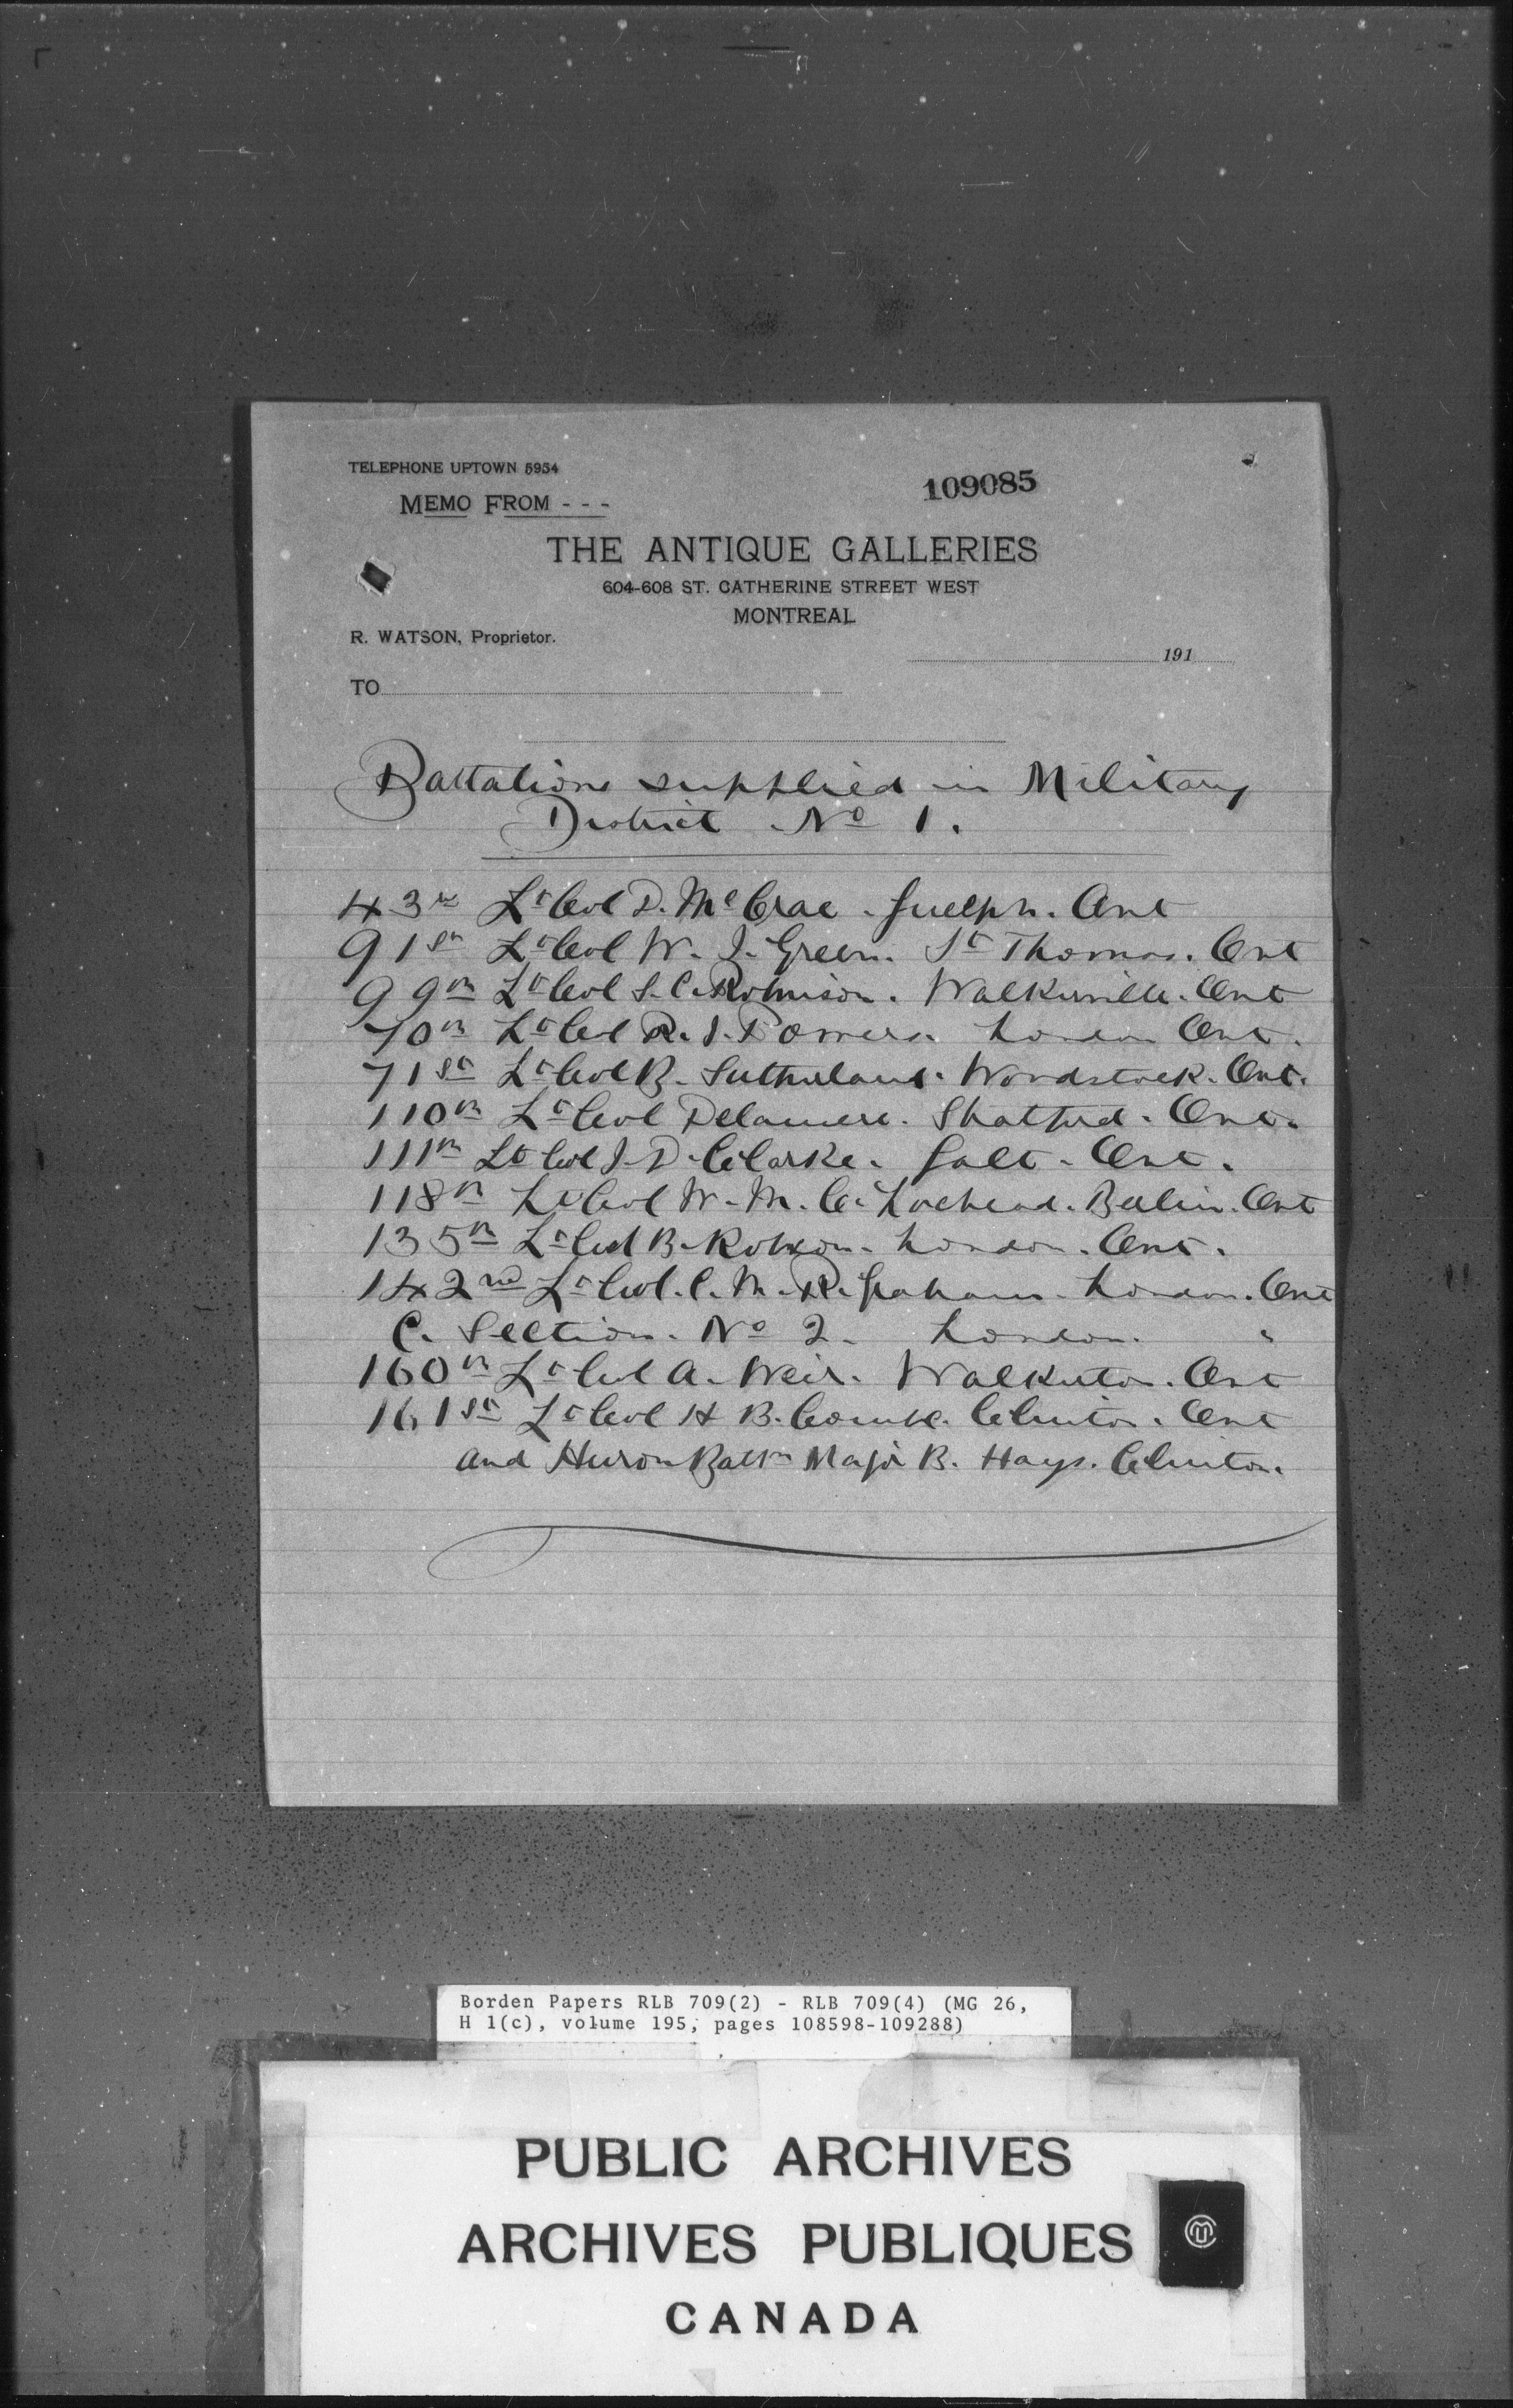 TELEPHONE UPTOWN 5954
109085
MEMO FROM - - -
THE ANTIQUE GALLERIES
604-608 ST. CATHERINE STREET WEST
MONTREAL
R. WATSON, Proprietor.
191
TO
Battalions supplied in Military
District No 1.
43rd Lt Col D. McCrae. Guelph. Ont
91st Lt Col W. J. Green. St Thomas. Ont
99th Lt Col S. C. Robinson. Walkerville. Ont
70th Lt Col R. I. Towers. London Ont.
71st Lt Col B. Sutherland. Woodstock. Ont.
110th Lt Col Delamere. Stratford. Ont.
111th Lt Col J. D. Clarke. Galt. Ont.
118th Lt Col W. M. O. Lochead. Berlin. Ont
135th Lt Col B. Robson. London. Ont.
142nd Lt Col. C. M. R. Graham. London. Ont
C. Section. No 2. London. "
160th Lt Col A. Weir. Walkerton. Ont
161st Lt Col H B. Combe. Clinton. Ont
and Huron Battn Major B. Hays. Clinton.
Borden Papers RLB 709(2) - RLB 709(4) (MG 26,
H 1(c), volume 195, pages 108598-109288)
PUBLIC ARCHIVES
ARCHIVES PUBLIQUES
CANADA